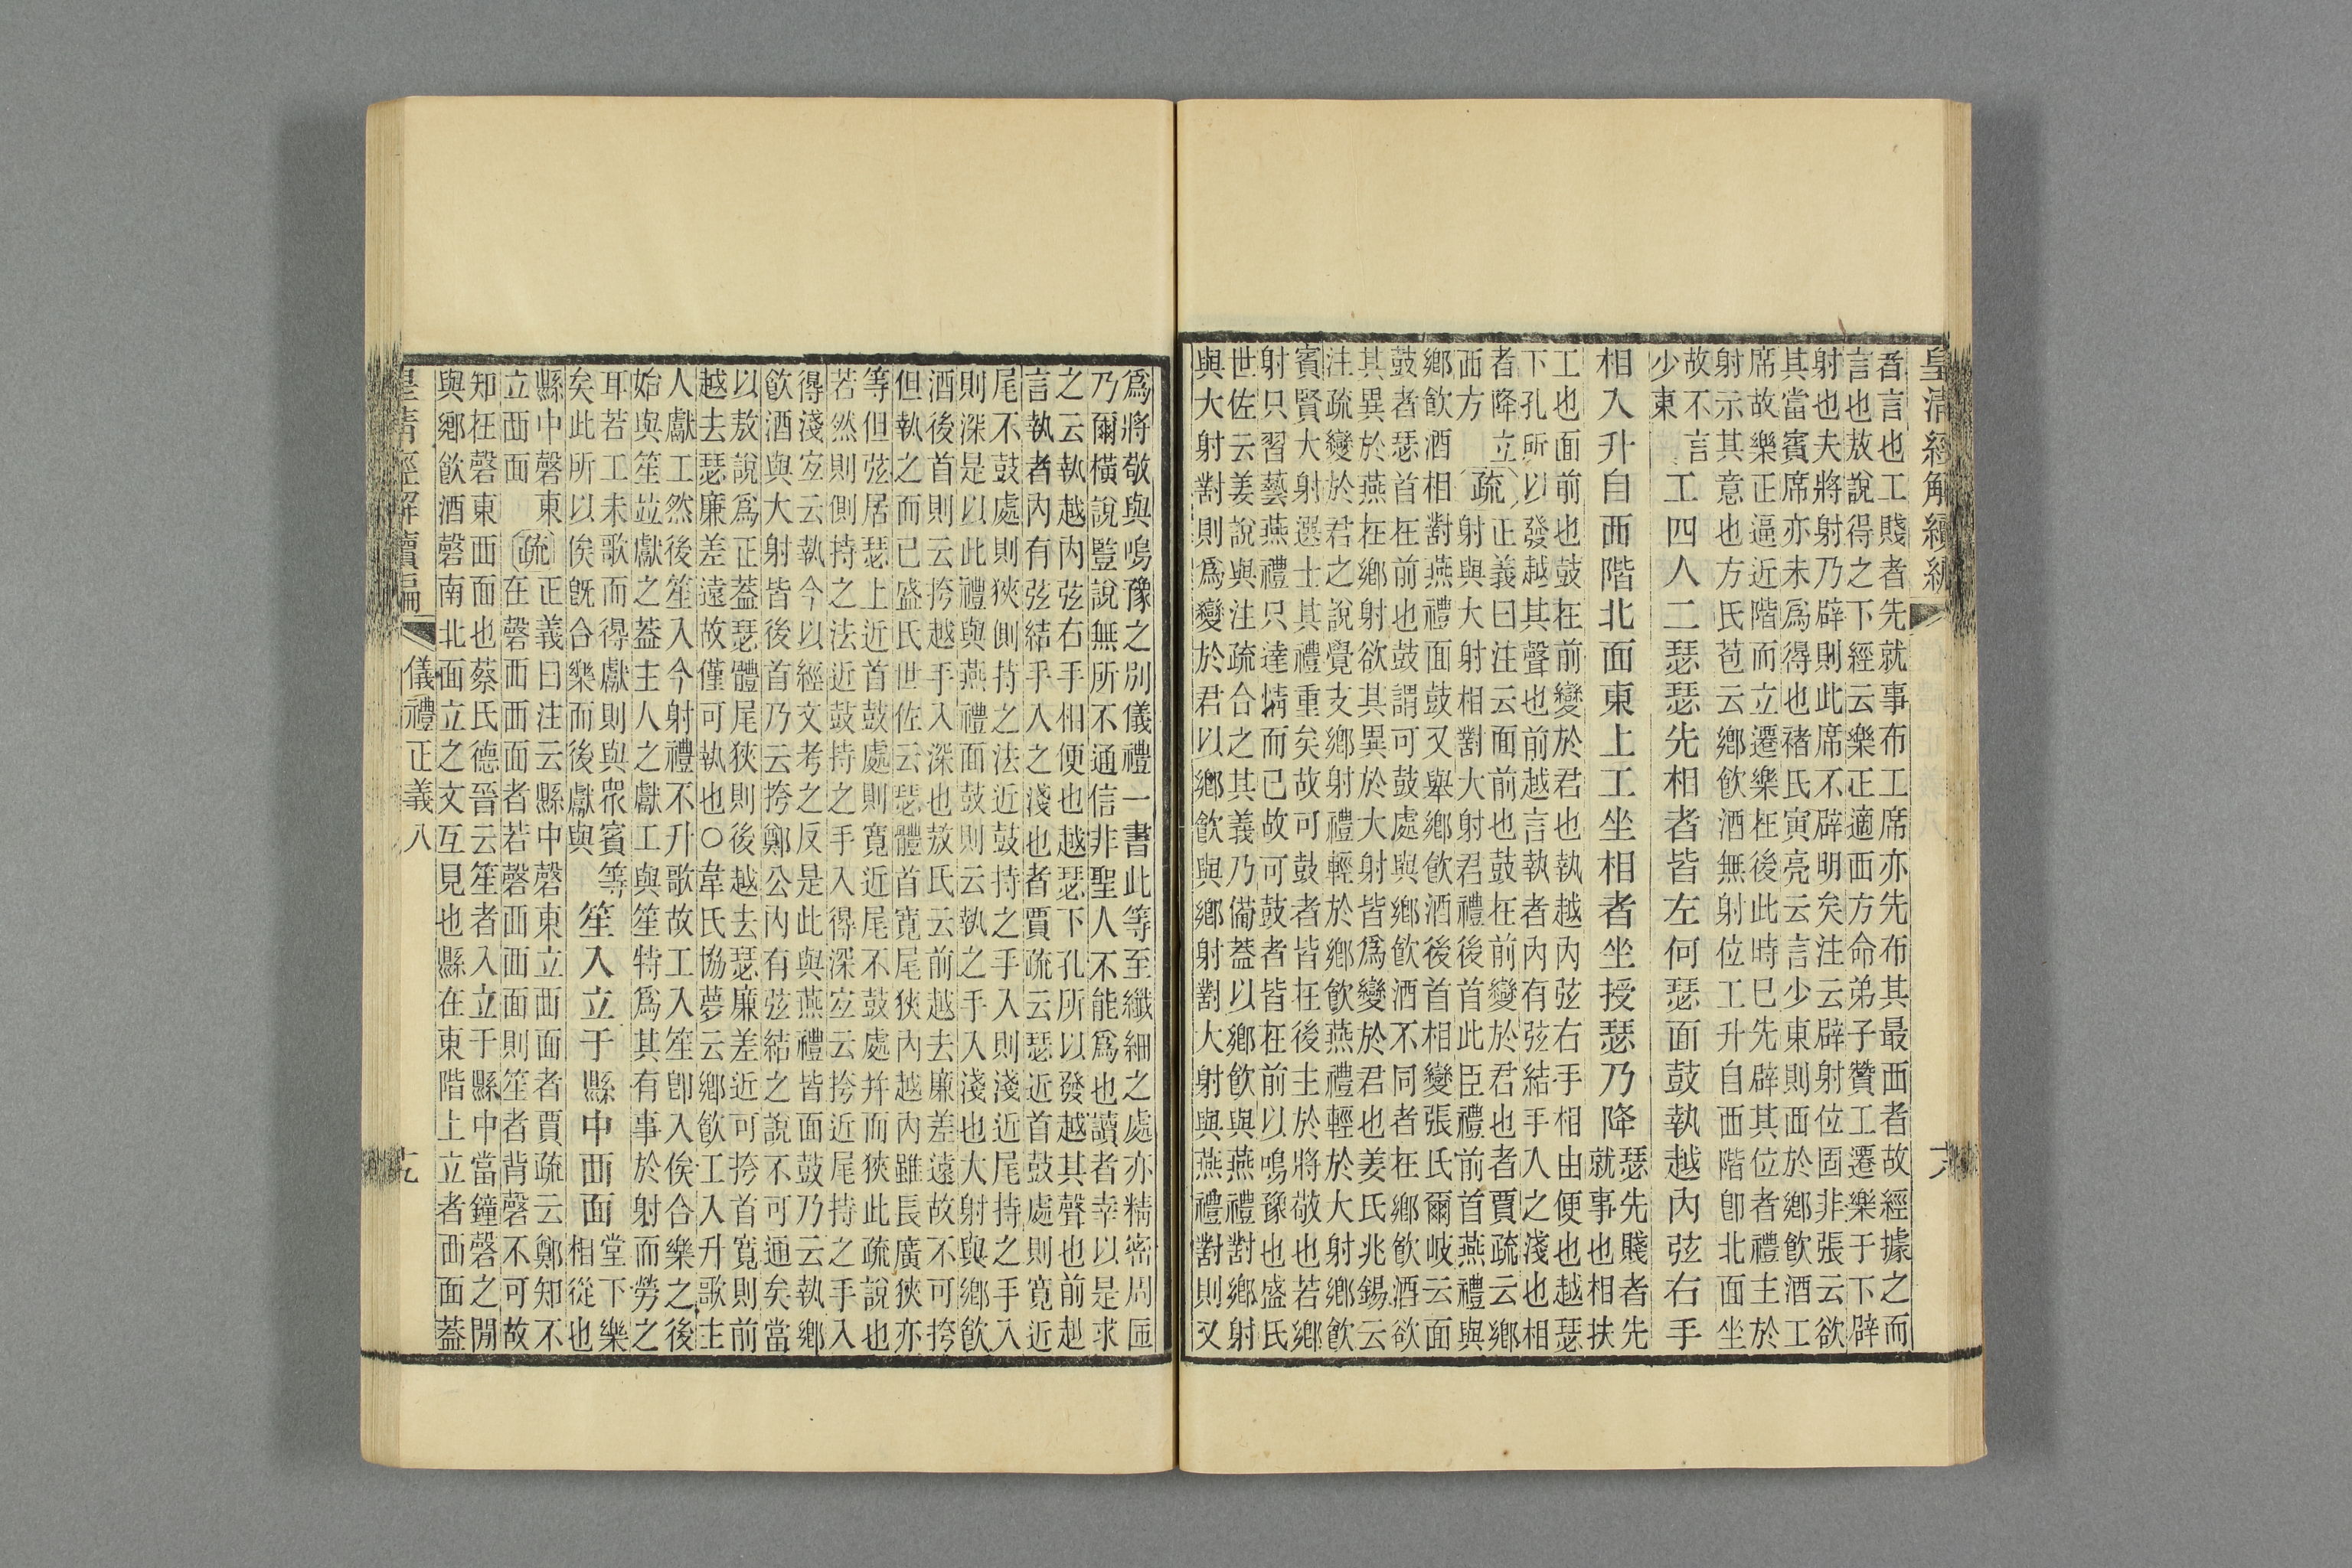 皇清經解續編
者言也工賤者先就事布工席亦先布其最西者故經據之而
言也敖說得之下經云樂正適西方命弟子贊工遷樂于下辟
射也夫將射乃辟則此席不辟明矣注云辟射位固非張云欲
其當賓席亦未爲得也褚氏寅亮云言少東則西於鄉飲酒工
席故樂正逼近階而立遷樂在後此時已先辟其位者禮主於
射示其意也方氏苞云鄉飲酒無射位工升自西階卽北面坐
故不言
少東
工四人二瑟瑟先相者皆左何瑟面鼓執越內弦右手
相入升自西階北面東上工坐相者坐授瑟乃降
瑟先賤者先
就事也相扶
工也面前也鼓在前變於君也執越內弦右手相由便也越瑟
下孔所以發越其聲也前越言執者內有弦結手入之淺也相
者降立
面方
疏
正義曰注云面前也鼓在前變於君也者賈疏云鄉
射與大射相對大射君禮後首此臣禮前首燕禮與
鄉飲酒相對燕禮面鼓又舉鄉飲酒後首相變張氏爾岐云面
鼓者瑟首在前也鼓謂可鼓處與鄉飲酒不同者在鄉飲酒欲
其異於燕在鄉射欲其異於大射皆爲變於君也姜氏兆錫云
注疏變於君之說覺支鄉射禮輕於鄉飲燕禮輕於大射鄉飲
賓賢大射選士其禮重矣故可鼓者皆在後主於將敬也若鄉
射只習藝燕禮只達情而已故可鼓者皆在前以鳴豫也盛氏
世佐云姜說與注疏合之其義乃備蓋以鄉飲與燕禮對鄉射
與大射對則爲變於君以鄉飲與鄉射對大射與燕禮對則又
爲將敬與鳴豫之別儀禮一書此等至纖細之處亦精密周匝
乃爾橫說豎說無所不通信非聖人不能爲也讀者幸以是求
之云執越內弦右手相便也越瑟下孔所以發越其聲也前越
言執者內有弦結手入之淺也者賈疏云瑟近首鼓處則寬近
尾不鼓處則狹側持之法近鼓持之手入則淺近尾持之手入
則深是以此禮與燕禮面鼓則云執之手入淺也大射與鄉飲
酒後首則云挎越手入深也敖氏云前越去廉差遠故不可挎
但執之而已盛氏世佐云瑟體首寬尾狹內越內雖長廣狹亦
等但弦居瑟上近首鼓處則寬近尾不鼓處并而狹此疏說也
若然則側持之法近鼓持之手入得深宐云挎近尾持之手入
得淺宐云執今以經文考之反是此與燕禮皆面鼓乃云執鄉
飲酒與大射皆後首乃云挎鄭公內有弦結之說不可通矣當
以敖說爲正蓋瑟體尾狹則後越去瑟廉差近可挎首寬則前
越去瑟廉差遠故僅可執也○韋氏協夢云鄉飲工入升歌主
人獻工然後笙入今射禮不升歌故工入笙卽入俟合樂之後
始與笙竝獻之蓋主人之獻工與笙特爲其有事於射而勞之
耳若工未歌而得獻則與衆賓等
矣此所以俟旣合樂而後獻與
笙入立于縣中西面
堂下樂
相從也
縣中磬東
立西面
疏
正義曰注云縣中磬東立西面者賈疏云鄭知不
在磬西西面者若磬西面則笙者背磬不可故
知在磬東西面也蔡氏德晉云笙者入立于縣中當鐘磬之閒
與鄉飲酒磬南北面立之文互見也縣在東階上立者西面蓋
皇清經解續編
儀禮正義八